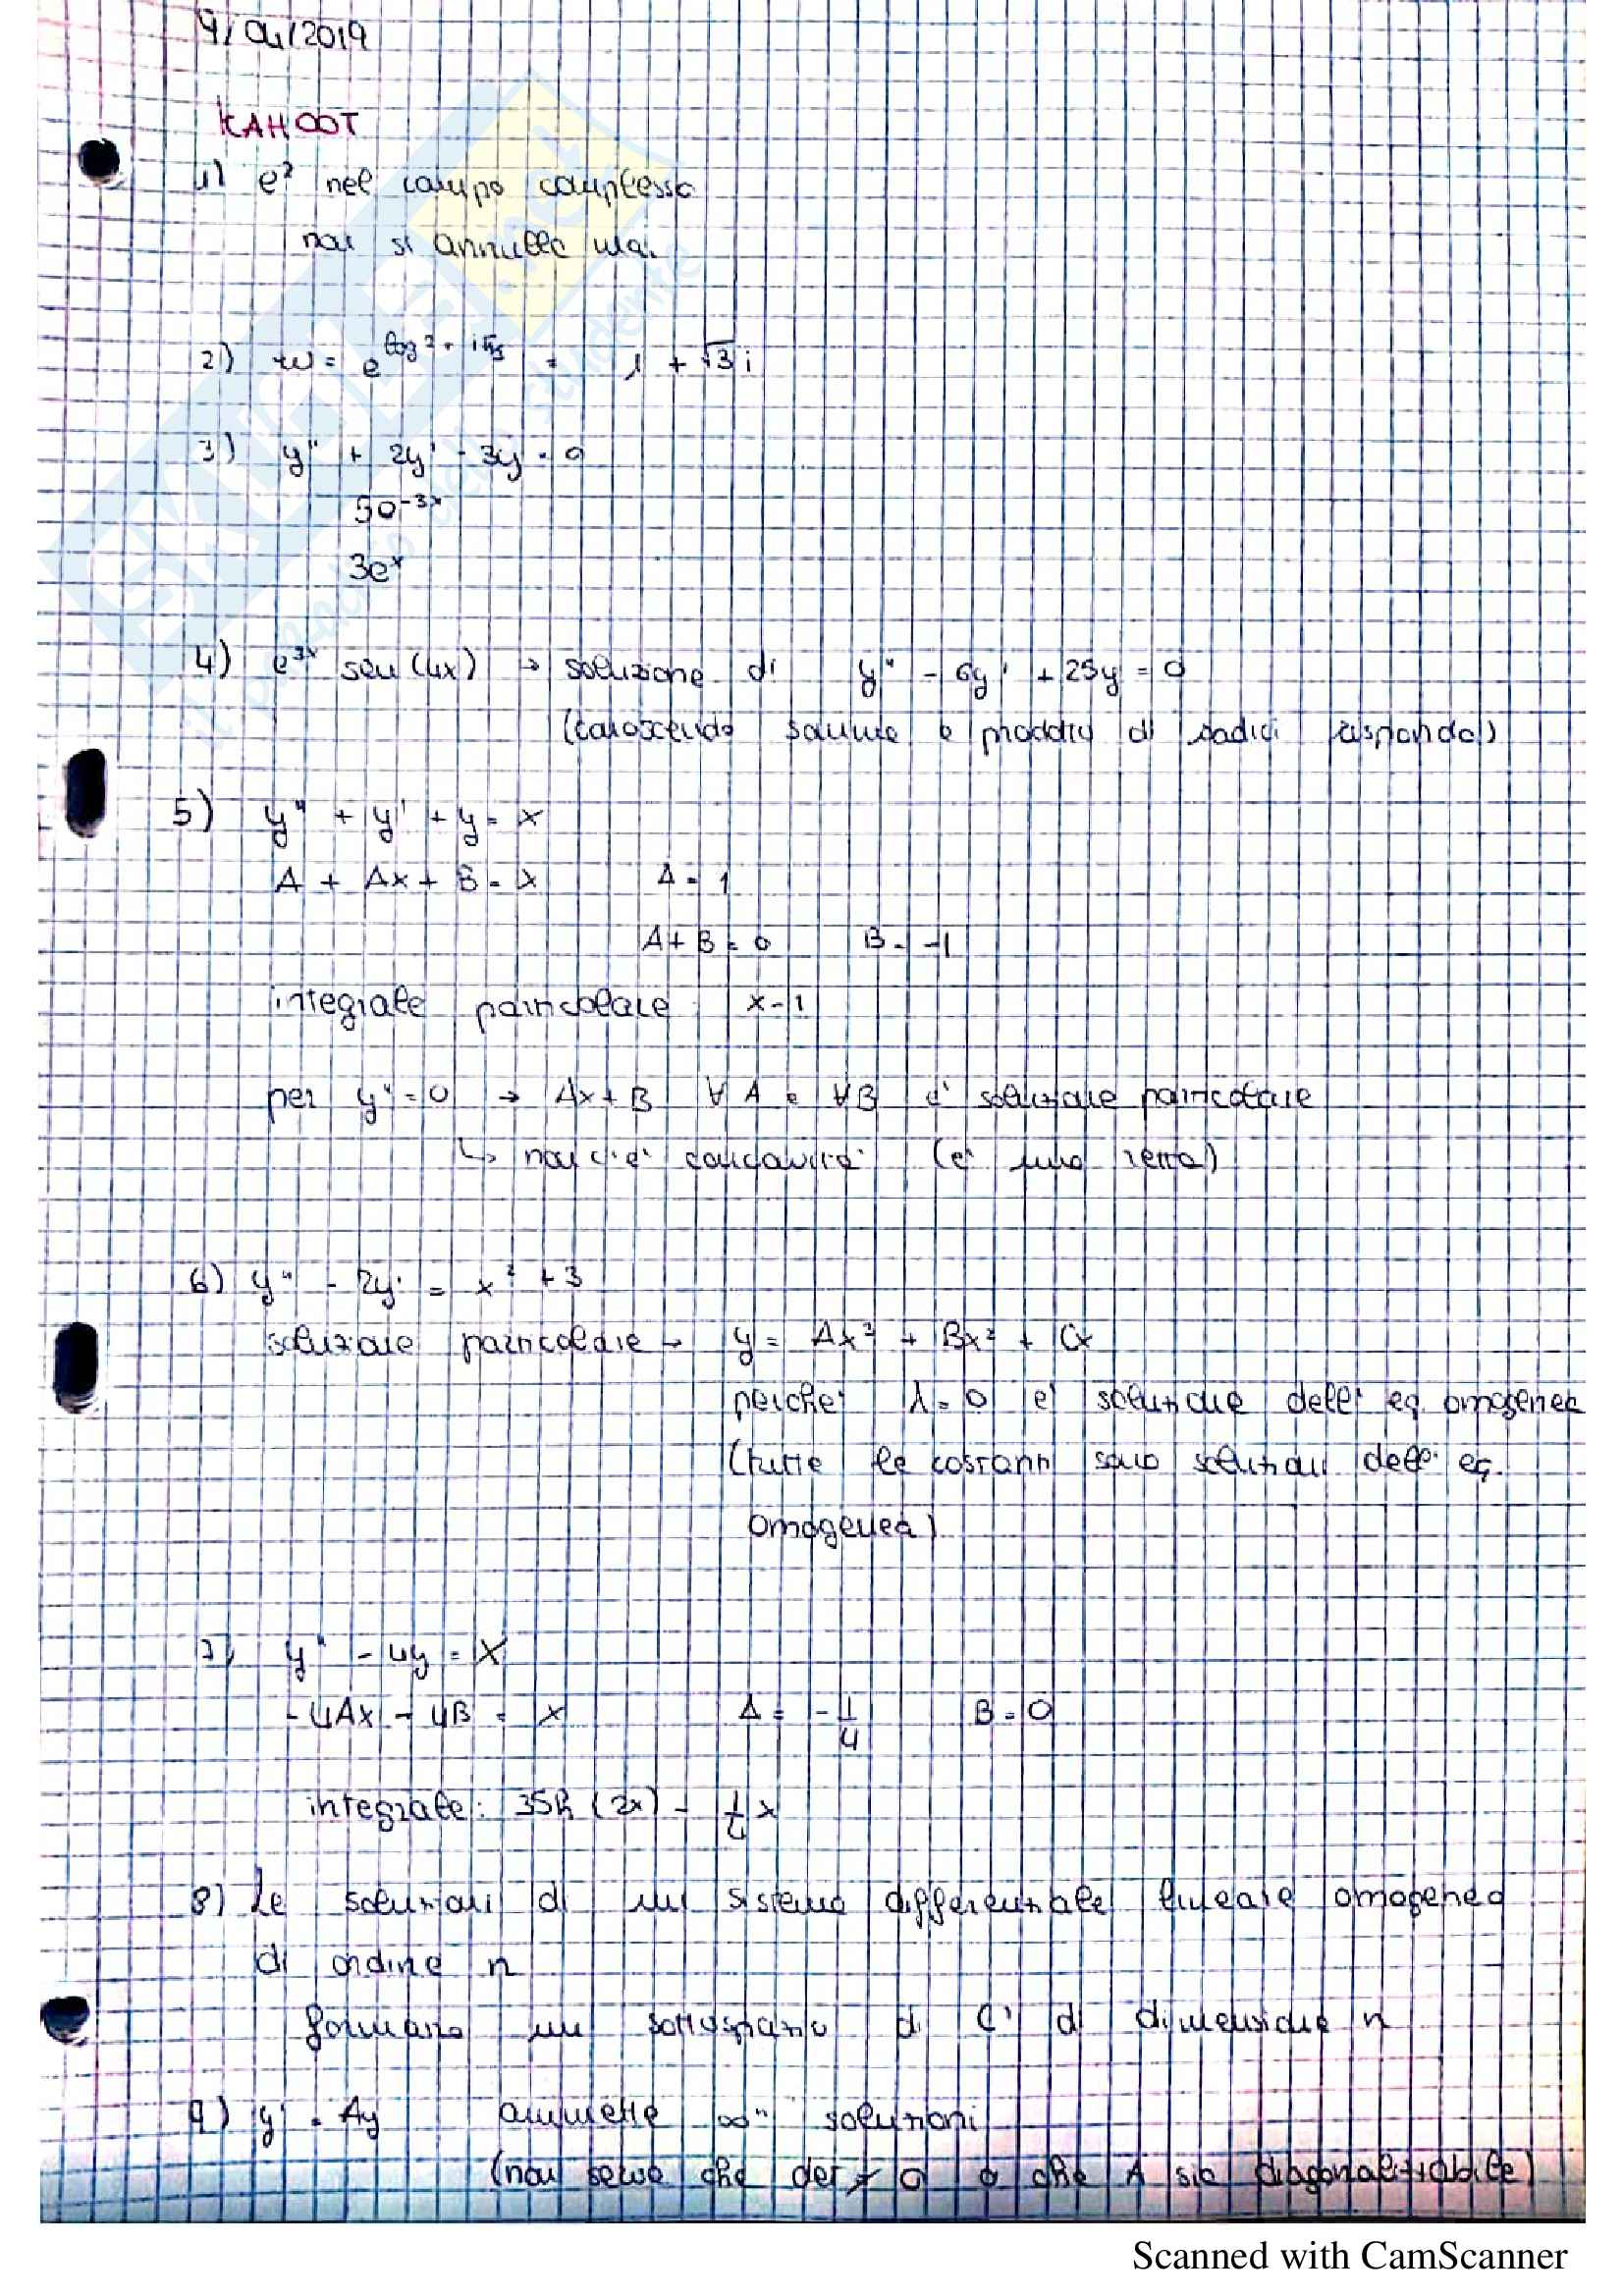 9/04/2019
KAHOOT
1) e^z nel campo complesso
non si annulla mai
2) w = e^(log 2 + iπ/3) = 1 + √3 i
3) y'' + 2y' - 3y = 0
5e^-3x
3e^x
4) e^3x sen(4x) → soluzione di y'' - 6y' + 25y = 0
(conoscendo somma e prodotto di radici rispondo)
5) y'' + y' + y = x
A + Ax + B = x A = 1
A + B = 0 B = -1
integrale particolare x-1
per y''=0 → Ax+B ∀A e ∀B è soluzione particolare
↳ non c'è concavità (è una retta)
6) y'' - 2y' = x² + 3
soluzione particolare → y = Ax³ + Bx² + Cx
perché λ=0 è soluzione dell'eq. omogenea
(tutte le costanti sono soluzioni dell'eq.
omogenea)
7) y'' - 4y = x
-4Ax - 4B = x A = -1/4 B = 0
integrale: 3Sh(2x) - 1/4 x
8) Le soluzioni di un sistema differenziale lineare omogeneo
di ordine n
formano un sottospazio di C¹ di dimensione n
9) y' = Ay ammette ∞ⁿ soluzioni
(non serve che det ≠ 0 o che A sia diagonalizzabile)
SKUOLA.net
il paradiso dello studente
Scanned with CamScanner